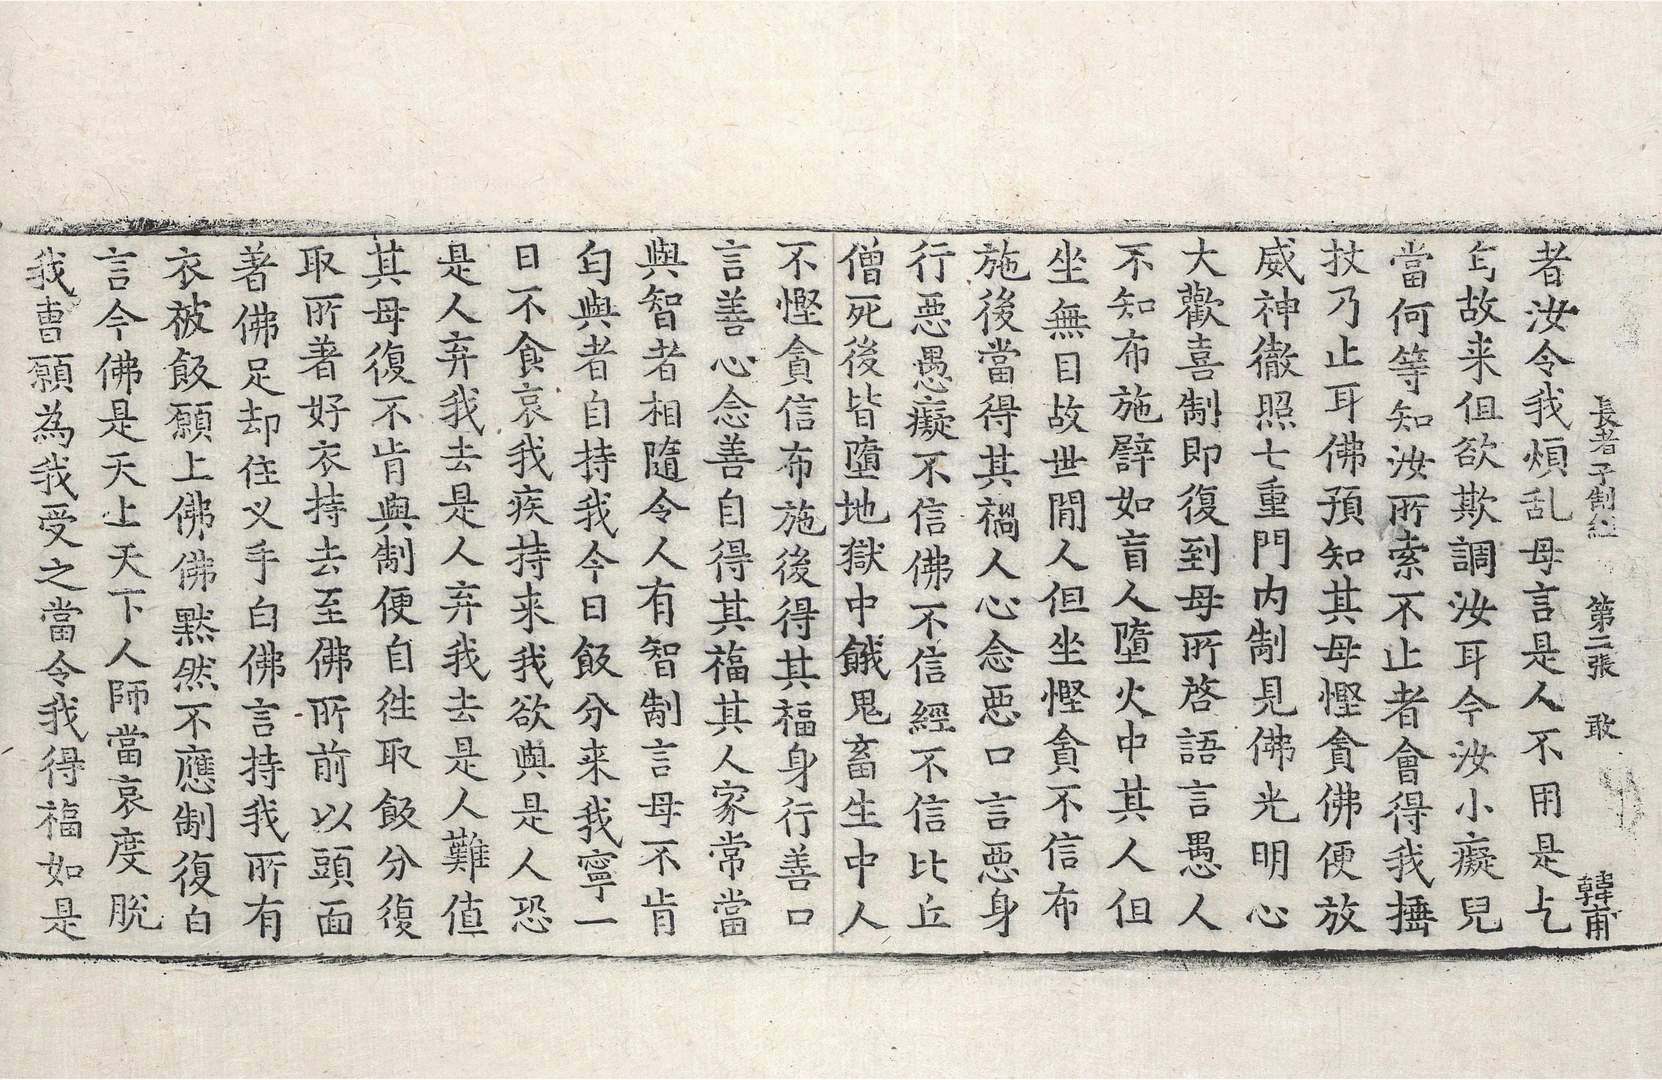 長者子制經 第二張 敢 韓甫
者汝令我煩乱母言是人不用是乞
匃故来但欲欺調汝耳今汝小癡兒
當何等知汝所索不止者會得我捶
杖乃止耳佛預知其母慳貪佛便放
威神徹照七重門内制見佛光明心
大歡喜制即復到母所啓語言愚人
不知布施譬如盲人墮火中其人但
坐無目故世間人但坐慳貪不信布
施後當得其禍人心念惡口言惡身
行惡愚癡不信佛不信經不信比丘
僧死後皆墮地獄中餓鬼畜生中人
不慳貪信布施後得其福身行善口
言善心念善自得其福其人家常當
與智者相隨令人有智制言母不肯
匃與者自持我今日飯分来我寧一
日不食哀我疾持来我欲與是人恐
是人弃我去是人弃我去是人難值
其母復不肯與制便自往取飯分復
取所著好衣持去至佛所前以頭面
著佛足却住叉手白佛言持我所有
衣被飯願上佛佛默然不應制復白
言今佛是天上天下人師當哀度脫
我曹願為我受之當令我得福如是